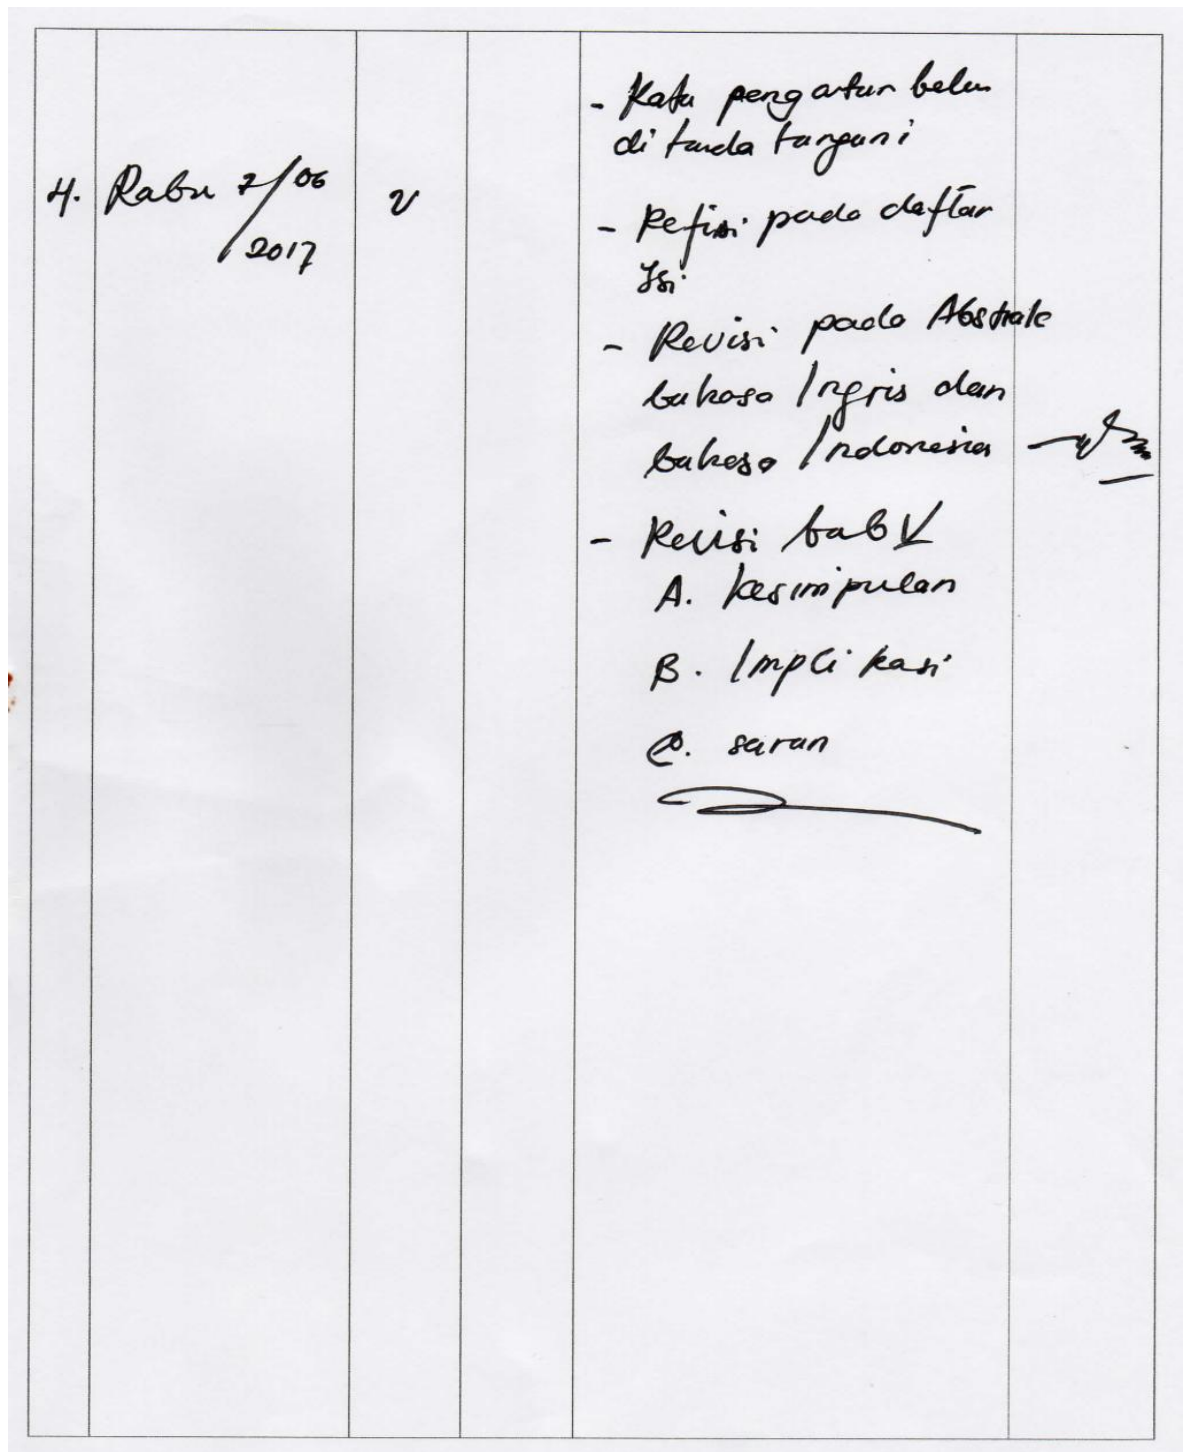 - Kata pengantar belum
di tanda tangani
4. Rabu 7/06
/2017
v
- Refisi pada daftar
Isi
- Revisi pada Abstrak
bahasa Ingris dan
bahasa Indonesia
- Revisi bab V
A. kesimpulan
B. Implikasi
C. saran